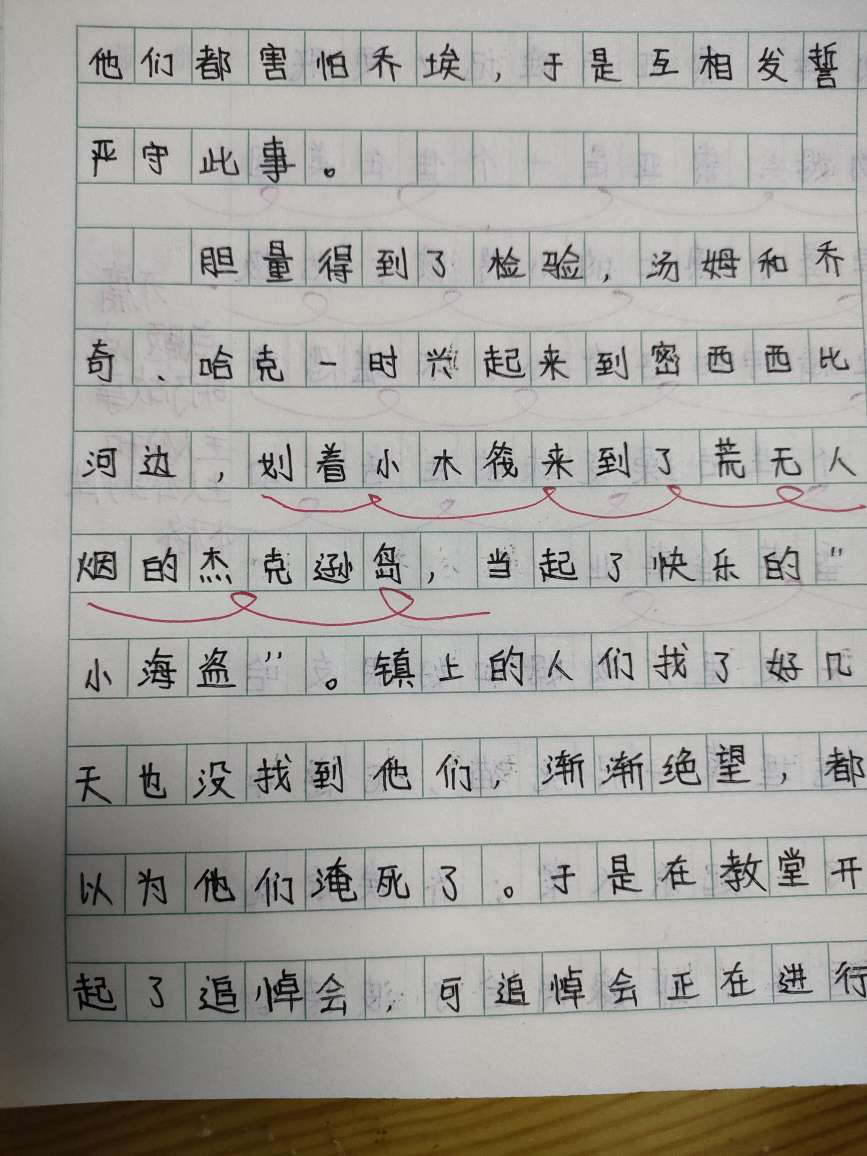 他们都害怕乔埃，于是互相发誓
严守此事。
胆量得到了检验，汤姆和乔
奇、哈克一时兴起来到密西西比
河边，划着小木筏来到了荒无人
烟的杰克逊岛，当起了快乐的"
小海盗"。镇上的人们找了好几
天也没找到他们，渐渐绝望，都
以为他们淹死了。于是在教堂开
起了追悼会，可追悼会正在进行